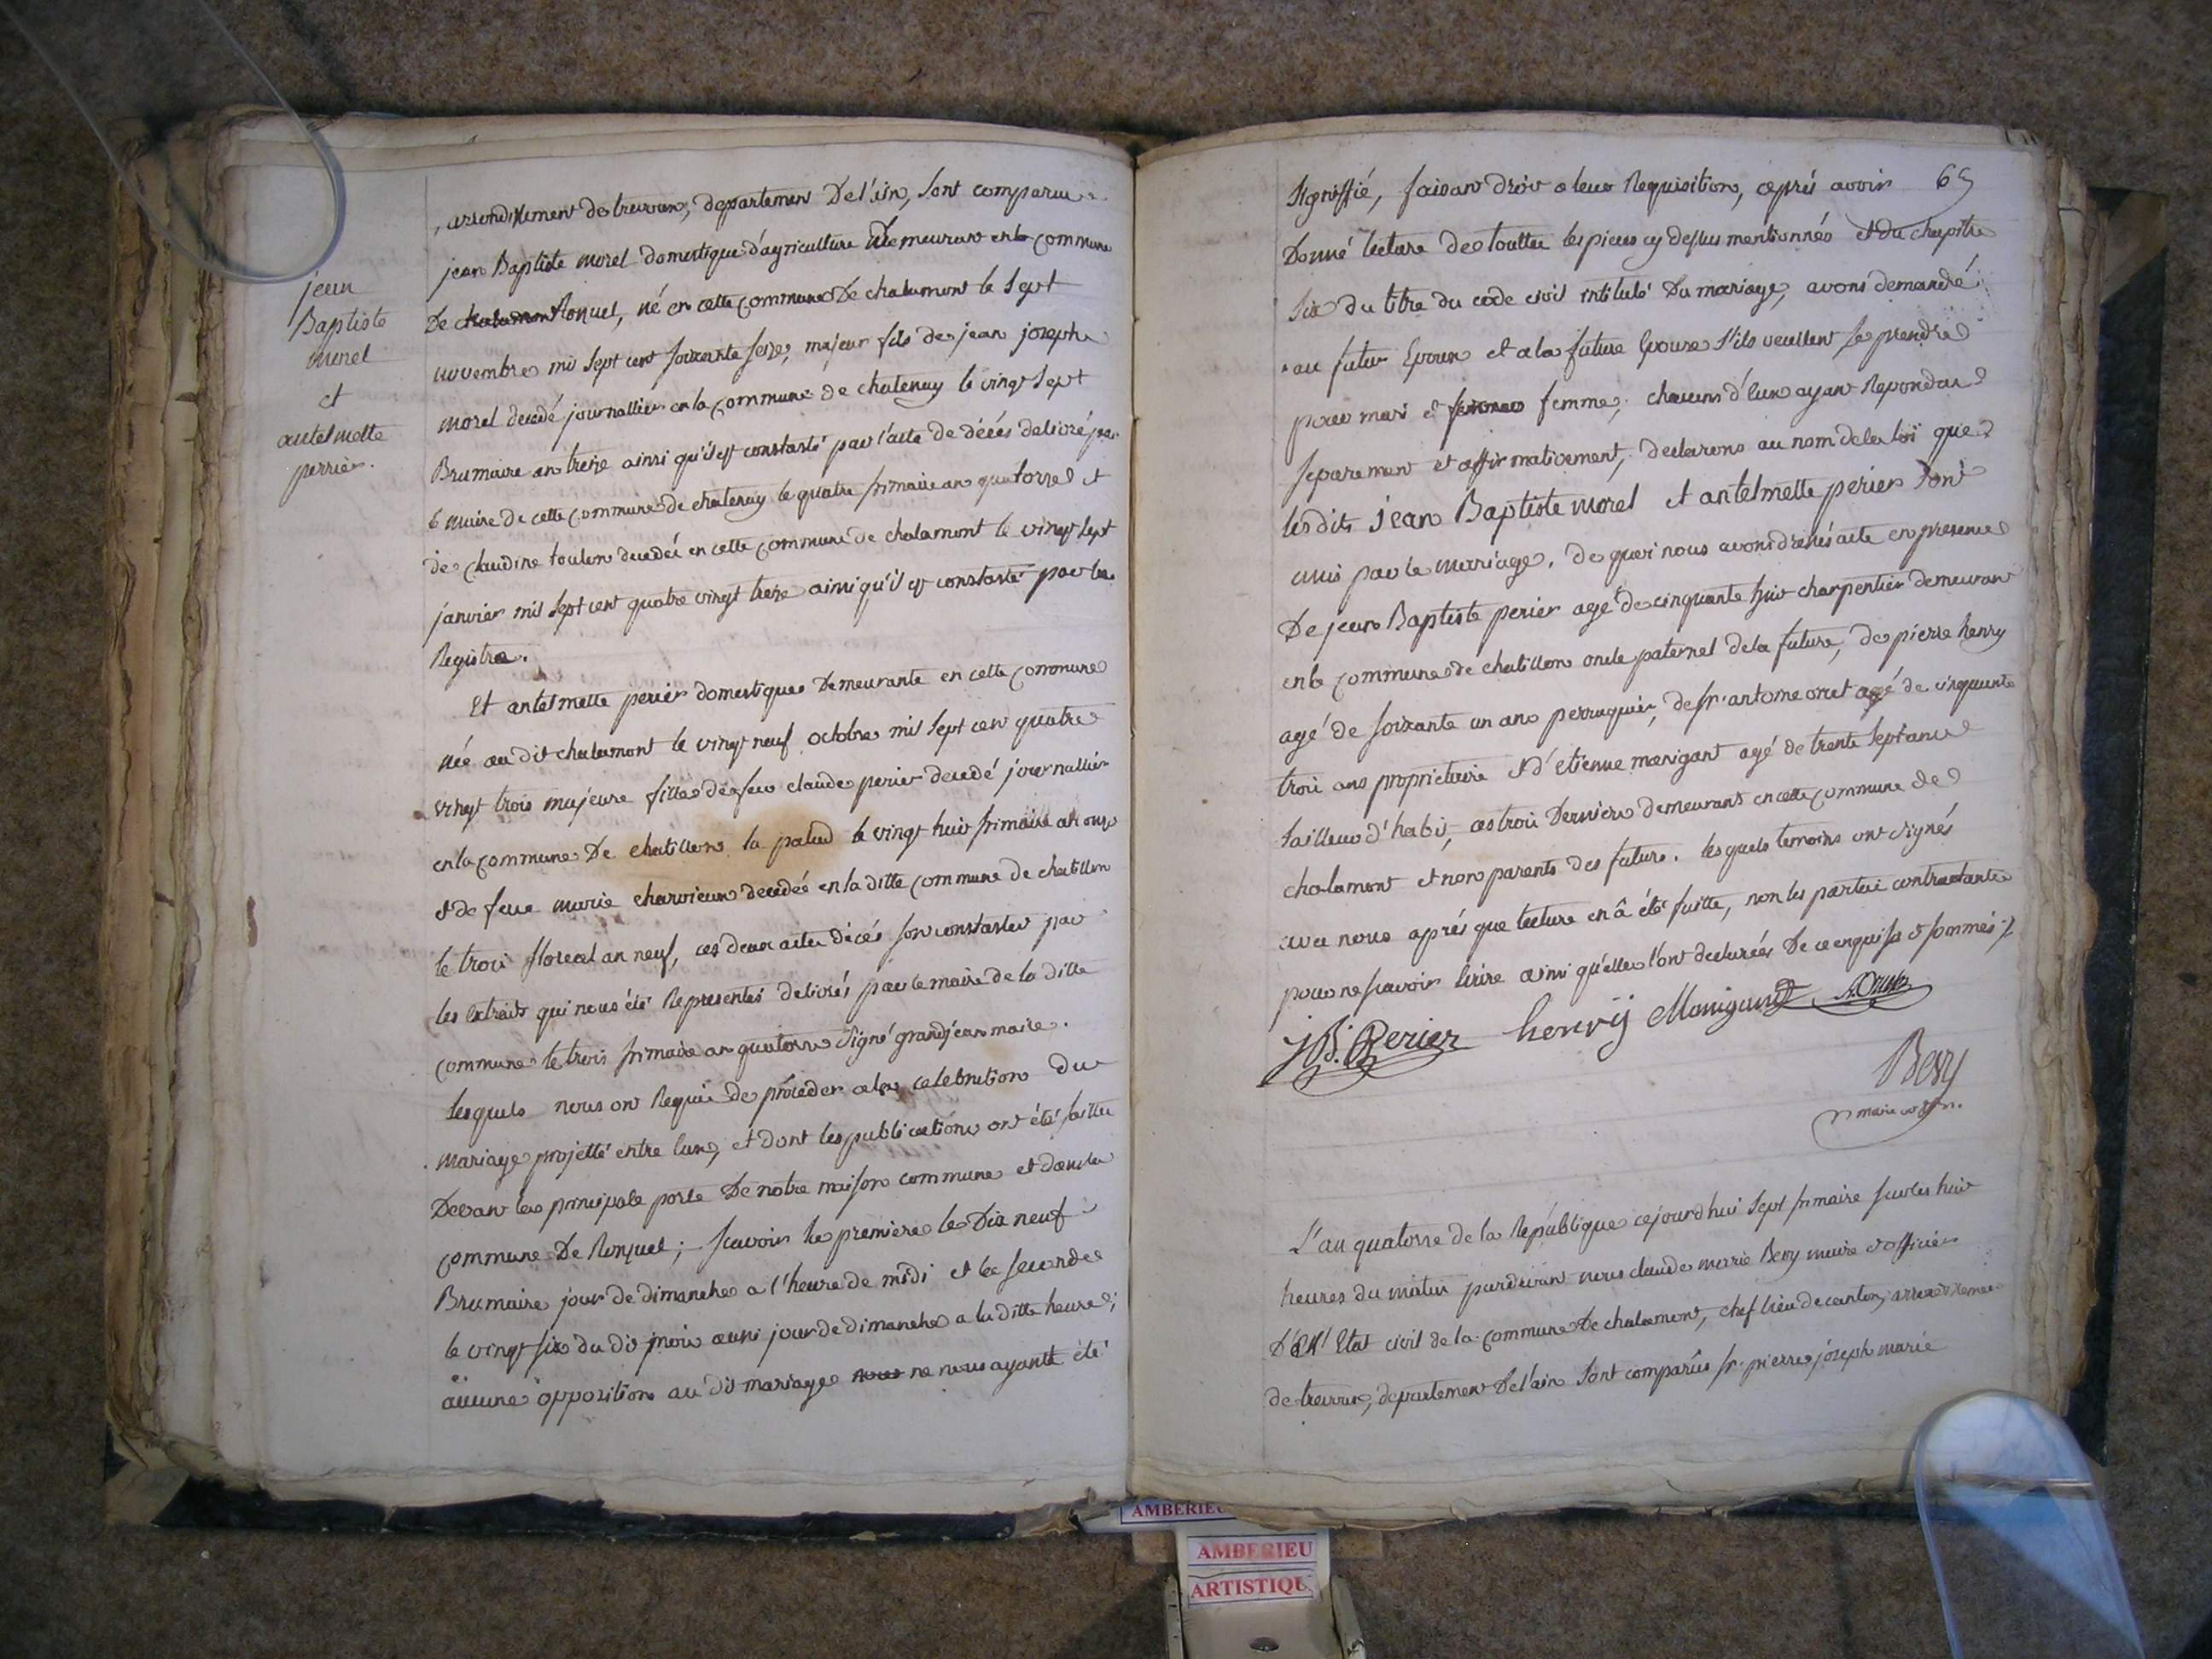 jean
Baptiste
morel
et
antelmette
perrier.
, arrondissement de trevoux, departement De l'ain, sont comparu
jean Baptiste morel domestique d'agriculture Demeurant en la commune
De chalamont Ronuel, né en cette commune De chalamont le sept
novembre mil sept cent soixante seize, majeur fils de jean joseph
morel decedé journallier en la commune de chatenay le vingt sept
Brumaire an treize ainsi qu'il est constasté par l'acte de décés delivré par
le maire de cette commune de chatenay le quatre frimaire an quatorze et
de claudine toulon decedéé en cette commune de chalamont le vingt sept
janvier mil sept cent quatre vingt treize ainsi qu'il est constasté par les
Registre.
Et antelmette perier domestique Demeurante en cette commune
née au dit chalamont le vingt neuf octobre mil sept cent quatre
vingt trois majeure fille de feu claude perier decedé journallier
en la commune De chatillon la palud le vingt huit frimaire an onze
et de feue marie charvieux decedéé en la ditte commune de chatillon
le trois floreal an neuf, ces deux actes décés sont constastés par
les extraits qui nous été Representés delivrés par le maire de la ditte
commune le trois frimaire an quatorze signé grandjean maire.
lesquels nous ont Requis de procéder a la celebration du
mariage projetté entre eux, et dont les publications ont été faittes
Devant la principale porte De notre maison commune et dans la
commune De Ronzuel; scavoir la premiere le Dix neuf
Brumaire jour de dimanche a l'heure de midi et la seconde
le vingt six du dit mois aussi jour de dimanche a la ditte heure;
aucune opposition au dit mariage nous ne nous ayante été
65
signiffié, faisant droit a leur Requisition, aprés avoir
Donné lecture de toutte les pieces cy dessus mentionnés et du chapitre
six du titre du code civil intitulé Du mariage, avons demandé
au futur Epoux et a la future Epouse s'ils veuillent se prendre
pour mari et femme femme; chacuns d'eux ayant Repondu
separement et affirmativement, declarons au nom de la loi que
les dits jean Baptiste morel et antelmette perier sont
unis par le mariage. de quoi nous avons dressés acte en presence
De jean Baptiste perier agé de cinquante huit charpentier demeurant
en la commune de chatillon oncle paternel de la future, de pierre henry
agé de soixante un ans perruquier, de sr. antoine oruet agé de cinquante
trois ans proprietaire et d'etienne manigant agé de trente sept ans
tailleur d'habit, ces trois Derniers demeurants en cette commune de
chalamont et non parents des futurs. les quels temoins ont signés
avec nous aprés que lecture en â été faitte, non les parties contractantes
pour ne scavoir Ecrire ainsi qu'elles l'ont declarées De ce enquis et sommés
JB. Perier henrÿ Manigand
Bery
maire
L'an quatorze de la République cejourd'hui sept frimaire sur les huit
heures du matin pardevant nous claude marie Bery maire et officier
De l'Etat civil de la commune De chalamont, chef lieu de canton, arrondissement
de trevoux, departement De l'ain sont comparûs sr. pierre jóseph marie
AMBERIEU
AMBERIEU
ARTISTIQU